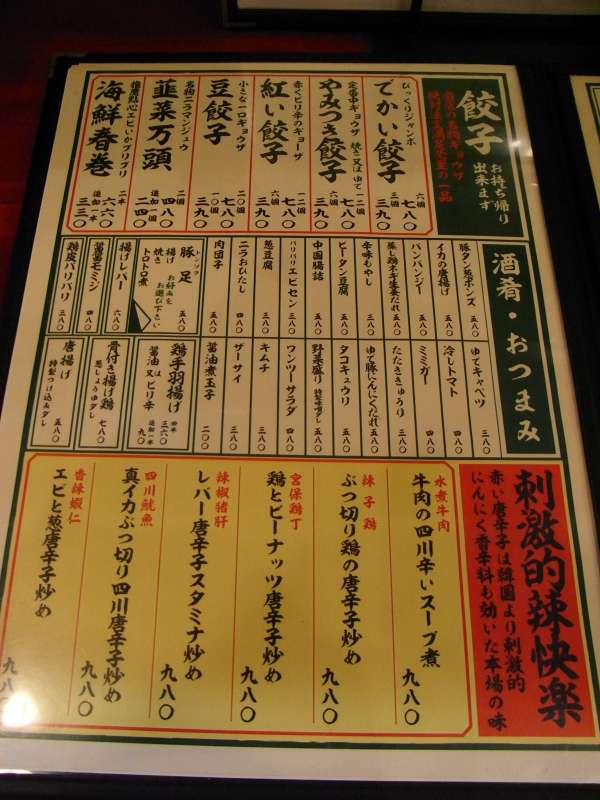 餃子
お持ち帰り
出来ます
びっくりジャンボ
でかい餃子
六個 七八〇
三個 三九〇
定番中ギョウザ 焼き又はゆで
やみつき餃子
十二個 七八〇
六個 三九〇
赤くピリ辛のギョーザ
紅い餃子
十二個 七八〇
六個 三九〇
小さな一口ギョウザ
豆餃子
二〇個 七八〇
一〇個 三九〇
名物ニラマンジュウ
韮菜万頭
二個 四八〇
追加一個 二四〇
海鮮春巻
二本 六六〇
追加一本 三三〇
酒肴・おつまみ
豚タン葱ポンズ 五八〇
イカの唐揚げ 五八〇
バンバンジー 五八〇
蒸し鶏ネギ生姜だれ 五八〇
辛味もやし 三八〇
ピータン豆腐 五八〇
中国腸詰 五八〇
パリパリエビセン 三八〇
葱豆腐 三八〇
ニラおひたし 四八〇
肉団子 五八〇
トンソク
豚足 五八〇
揚げ
焼き
トロトロ煮
お好みを
お選び下さい
揚げレバー 六八〇
モミジ 四八〇
鶏皮パリパリ 三八〇
ゆでキャベツ 三八〇
冷しトマト 四八〇
ミミガー 四八〇
たたききゅうり 三八〇
ゆで豚にんにくだれ 五八〇
タコキュウリ 五八〇
野菜盛り 特製味噌ダレ 五八〇
ワンツーサラダ 四八〇
キムチ 三八〇
ザーサイ 三八〇
醤油煮玉子 二〇〇
鶏手羽揚げ
醤油又はピリ辛
四本 三六〇
追加一本 九〇
骨付き揚げ鶏
葱しょうゆダレ 七八〇
唐揚げ
特製つけ込みダレ 五八〇
刺激的辣快楽
赤い唐辛子は韓国より刺激的
にんにく香辛料も効いた本場の味
水煮牛肉
牛肉の四川辛いスープ煮 九八〇
辣子鶏
ぶつ切り鶏の唐辛子炒め 九八〇
宮保鶏丁
鶏とピーナッツ唐辛子炒め 九八〇
辣椒猪肝
レバー唐辛子スタミナ炒め 九八〇
四川魷魚
真イカぶつ切り四川唐辛子炒め 九八〇
香辣蝦仁
エビと葱唐辛子炒め 九八〇